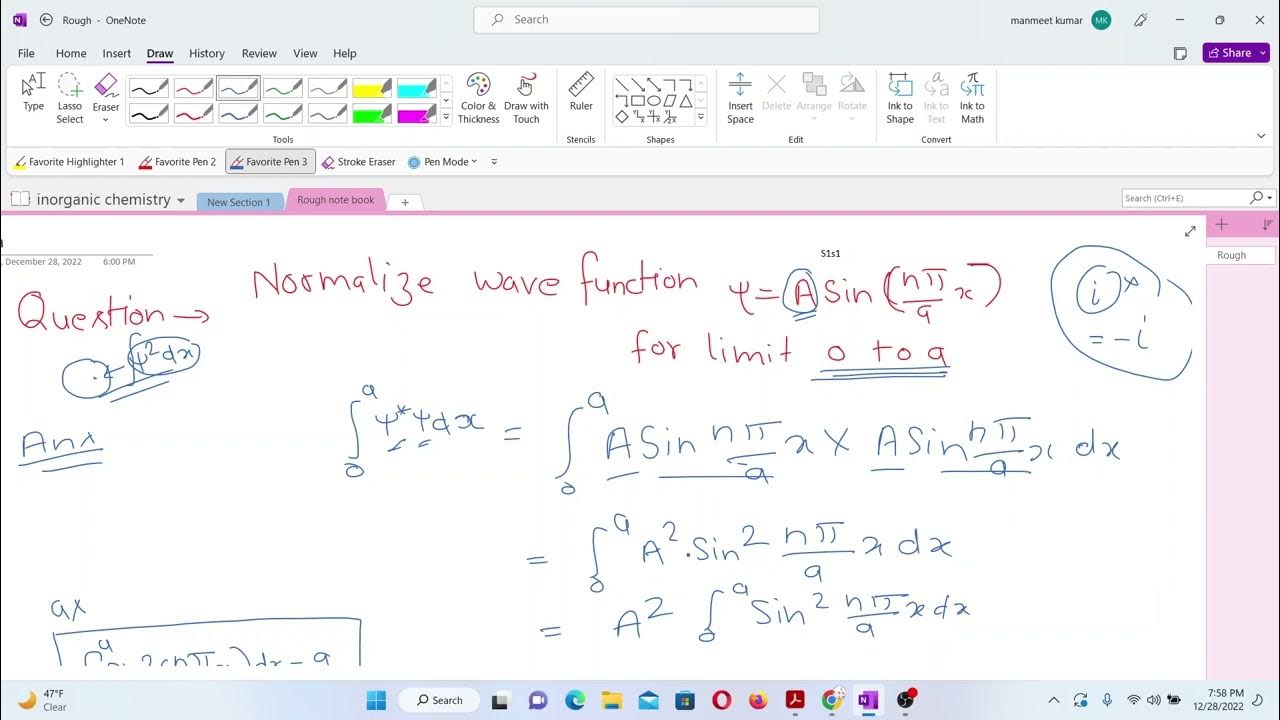 Rough - OneNote
Search
manmeet kumar MK
File Home Insert Draw History Review View Help
Share
Type
Lasso Select
Eraser
Color & Thickness
Draw with Touch
Ruler
Insert Space
Delete
Arrange
Rotate
Ink to Shape
Ink to Text
Ink to Math
Tools Stencils Shapes Edit Convert
Favorite Highlighter 1 Favorite Pen 2 Favorite Pen 3 Stroke Eraser Pen Mode
inorganic chemistry New Section 1 Rough note book +
Search (Ctrl+E)
Rough
, December 28, 2022 6:00 PM
S1s1
Question → Normalize wave function ψ = A Sin (nπ/a x)
for limit 0 to a
i* = -i
∫ψ²dx
Ans
∫₀ᵃ ψ*ψdx = ∫₀ᵃ A Sin nπ/a x × A Sin nπ/a x dx
= ∫₀ᵃ A².Sin² nπ/a x dx
= A² ∫₀ᵃ Sin² nπ/a x dx
ax
47°F
Clear
Search
7:58 PM
12/28/2022